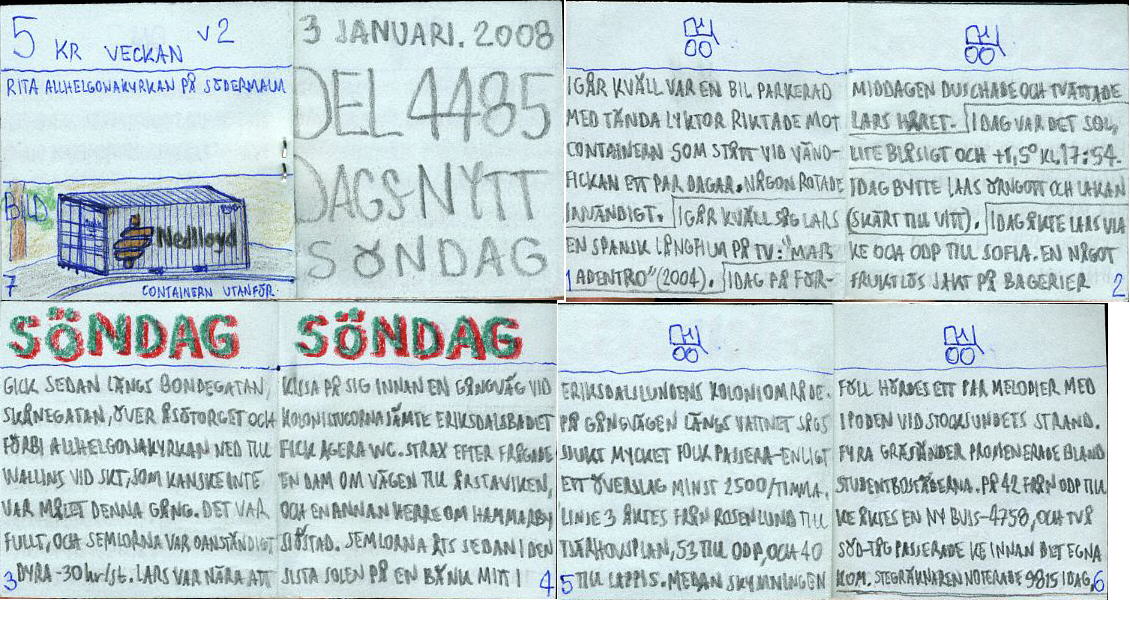 5 KR VECKAN v2
RITA ALLHELGONAKYRKAN PÅ SÖDERMALM
BILD
Nedlloyd
7
CONTAINERN UTANFÖR.
3 JANUARI. 2008
DEL 4485
DAGS-NYTT
SÖNDAG
IGÅR KVÄLL VAR EN BIL PARKERAD
MED TÄNDA LYKTOR RIKTADE MOT
CONTAINERN SOM STÅTT VID VÄND-
FICKAN ETT PAR DAGAR. NÅGON ROTADE
INVÄNDIGT. IGÅR KVÄLL SÅG LARS
EN SPANSK LÅNGFILM PÅ TV: "MAR
ADENTRO" (2004). IDAG PÅ FÖR-
1
MIDDAGEN DUSCHADE OCH TVÄTTADE
LARS HÅRET. IDAG VAR DET SOL,
LITE BLÅSIGT OCH +1,5° KL.17:54.
IDAG BYTTE LARS ÖRNGOTT OCH LAKAN
(SKÄRT TILL VITT). IDAG ÅKTE LARS VIA
KE OCH ODP TILL SOFIA. EN NÅGOT
FRUKTLÖS JAKT PÅ BAGERIER
2
SÖNDAG
GICK SEDAN LÄNGS BONDEGATAN,
SKÅNEGATAN, ÖVER ÅSÖTORGET OCH
FÖRBI ALLHELGONAKYRKAN NED TILL
WALLINS VID SKT, SOM KANSKE INTE
VAR MÅLET DENNA GÅNG. DET VAR
FULLT, OCH SEMLORNA VAR OANSTÄNDIGT
DYRA -30 kr/st. LARS VAR NÄRA ATT
3
SÖNDAG
KISSA PÅ SIG INNAN EN GÅNGVÄG VID
KOLONISTUGORNA JÄMTE ERIKSDALSBADET
FICK AGERA WC. STRAX EFTER FRÅGADE
EN DAM OM VÄGEN TILL ÅRSTAVIKEN,
OCH EN ANNAN HERRE OM HAMMARBY
SJÖSTAD. SEMLORNA ÅTS SEDAN I DEN
SISTA SOLEN PÅ EN BÄNK MITT I
4
ERIKSDALSLUNDENS KOLONIOMRÅDE.
PÅ GÅNGVÄGEN LÄNGS VATTNET SÅGS
SJUKT MYCKET FOLK PASSERA-ENLIGT
ETT ÖVERSLAG MINST 2500/TIMMA.
LINJE 3 ÅKTES FRÅN ROSENLUND TILL
TJÄRHOVSPLAN, 53 TILL ODP, OCH 40
TILL LAPPIS. MEDAN SKYMNINGEN
5
FÖLL HÖRDES ETT PAR MELODIER MED
IPODEN VID STOCKSUNDETS STRAND.
FYRA GRÄSÄNDER PROMENERADE BLAND
STUDENTBOSTÄDERNA. PÅ 42 FRÅN ODP TILL
KE ÅKTES EN NY BUSS-4758, OCH TVÅ
SÖD-TPG PASSERADE KE INNAN DET EGNA
KOM. STEGRÄKNAREN NOTERADE 9815 IDAG.
6